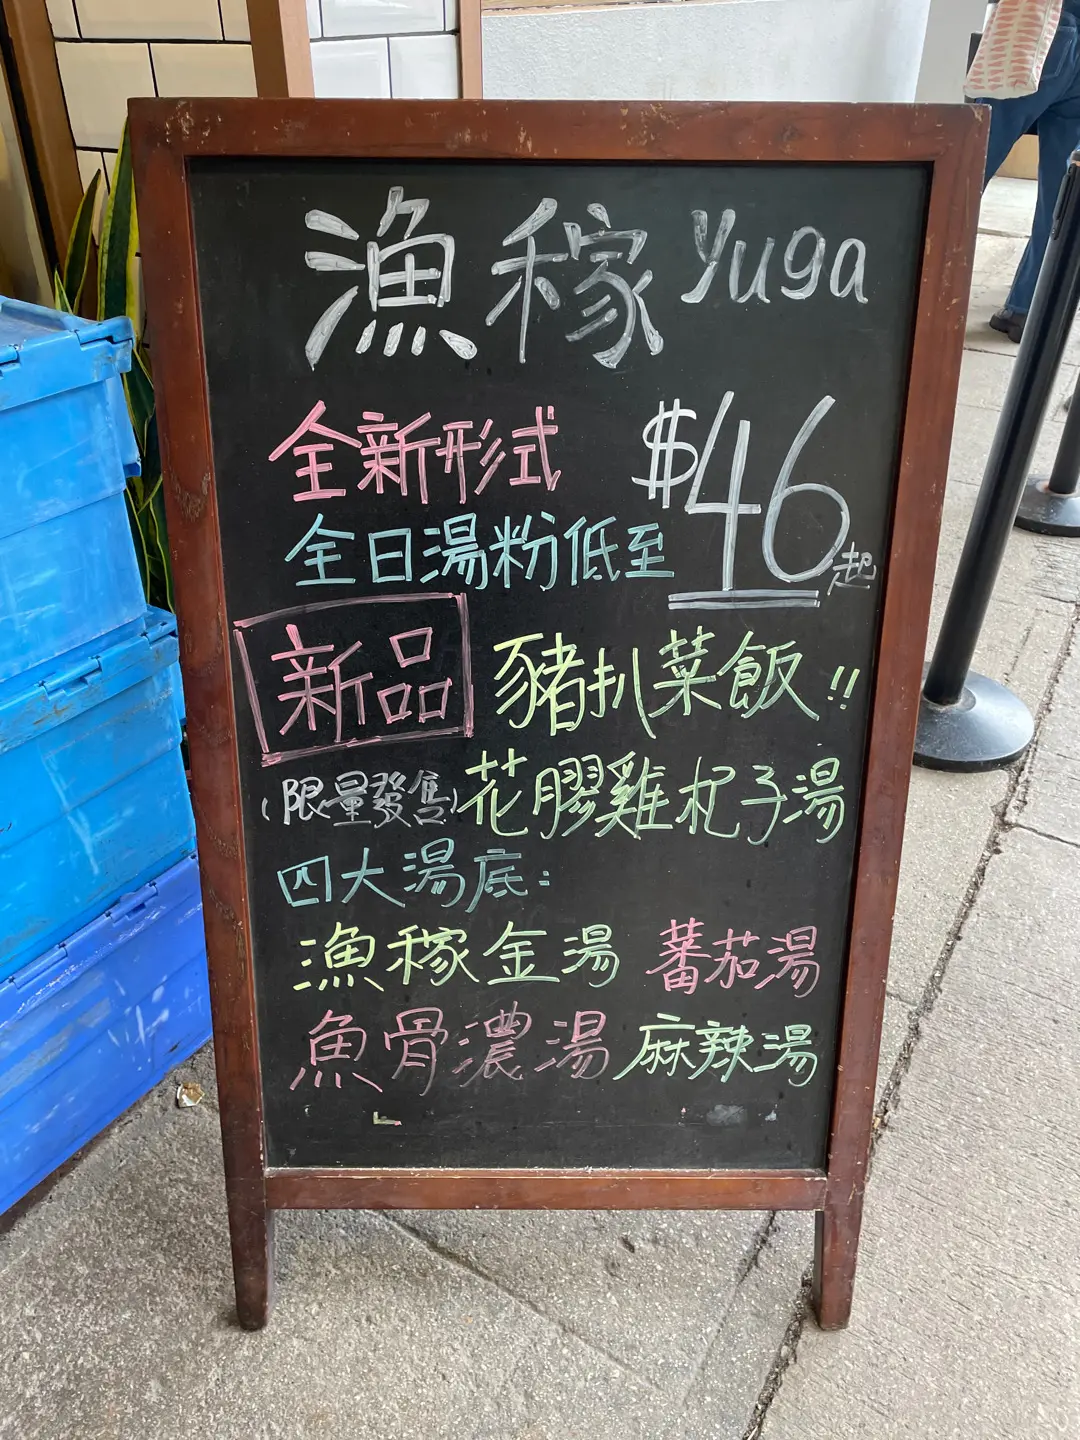 漁稼 Yuga
全新形式
全日湯粉低至 $46起
新品 豬扒菜飯!!
(限量發售) 花膠雞杞子湯
四大湯底:
漁稼金湯 蕃茄湯
魚骨濃湯 麻辣湯